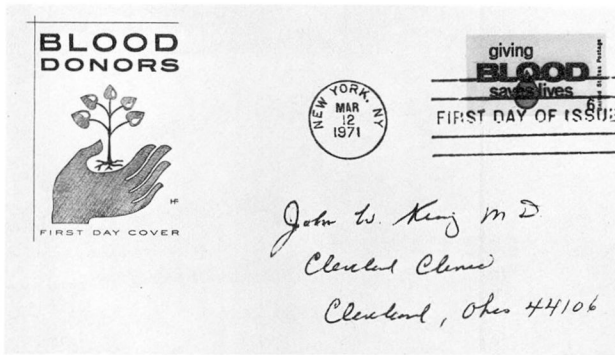 BLOOD
DONORS
HF
FIRST DAY COVER
NEW YORK, NY
MAR
12
1971
giving
BLOOD
saves lives
United States Postage
6
FIRST DAY OF ISSUE
John W. King M D.
Cleveland Clinic
Cleveland, Ohio 44106